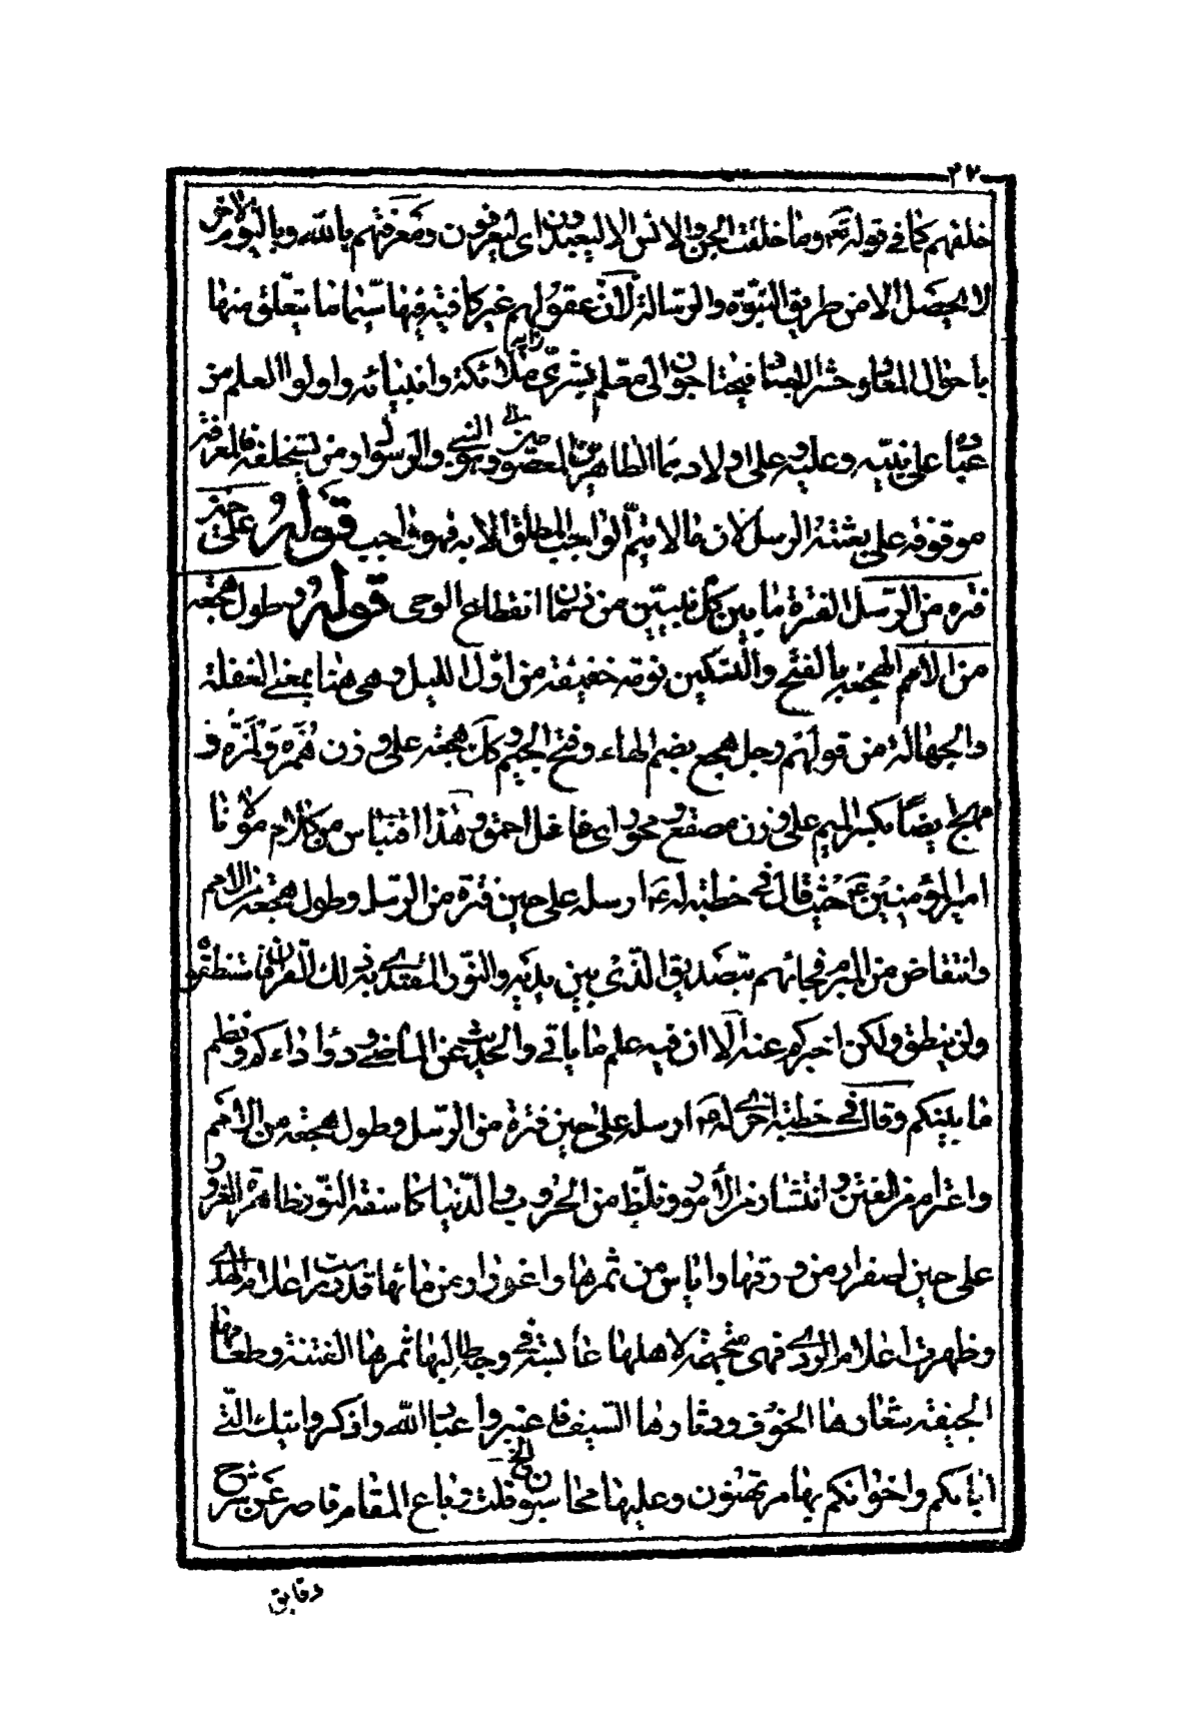 ٣٧
خلقهم كما في قوله تعه وما خلقت الجن والانس الا ليعبدون اى ليعرفون ومعرفتهم بالله وباليوم الاخر
لا يحصل الا من طريق النبوة والرسالة لان عقولهم غير كافية فيها سيما ما يتعلق منها
باحوال المعاد وحشر العباد فيحتاجون الى معلم بشرى ملائكته وانبيائه واولوا العلم من
عباده على نبيه وعليه وعلى اولاده الطاهرين المعصومين النبي والرسول ومن يستخلفه فالمعرفة
موقوفة على بعثة الرسل لان ما لا يتم الواجب المطلق الا به فهو واجب قوله على حين
فترة من الرسل الفترة ما بين كل نبيين من زمان انقطاع الوحى قوله وطول هجعة
من الامم الهجعة بالفتح والتسكين نومة خفيفة من اول الليل وهى هنا بمعنى الغفلة
والجهالة من قولهم رجل هجع بضم الهاء وفتح الجيم وكك هجعة على وزن همزة ولمزة و
مهجع ايضا بكسر الميم على وزن مصقع ومحود اى غافل احمق وهذا اقتباس من كلام مولانا
امير المؤمنين ع حيث قال في خطبة له ع ارسله على حين فترة من الرسل وطول هجعة من الامم
وانتقاض من المبرم فجائهم بتصديق الذى بين يديه والنور المقتدى به ذلك القران فاستنطقوه
ولن ينطق ولكن اخبركم عنه الا ان فيه علم ما ياتى والحديث عن الماضى ودواء دائكم ونظم
ما بينكم وقال في خطبة اخرى له ع ارسله على حين فترة من الرسل وطول هجعة من الامم
واعترام من الفتن وانتشار من الامور وتلظ من الحروب والدنيا كاسفة النور ظاهرة الغرور
على حين اصفرار من ورقها واياس من ثمرها واغورار من مائها قد درست اعلام الهدى
وظهرت اعلام الردى فهى متجهمة لاهلها عابسة في وجه طالبها ثمرها الفتنة وطعامها
الجيفة شعارها الخوف ودثارها السيف فاعتبروا عباد الله واذكروا تيك التى
اباؤكم واخوانكم بها مرتهنون وعليها محاسبون الخ قلت وباع المقام قاصر عن شرح
دقايق